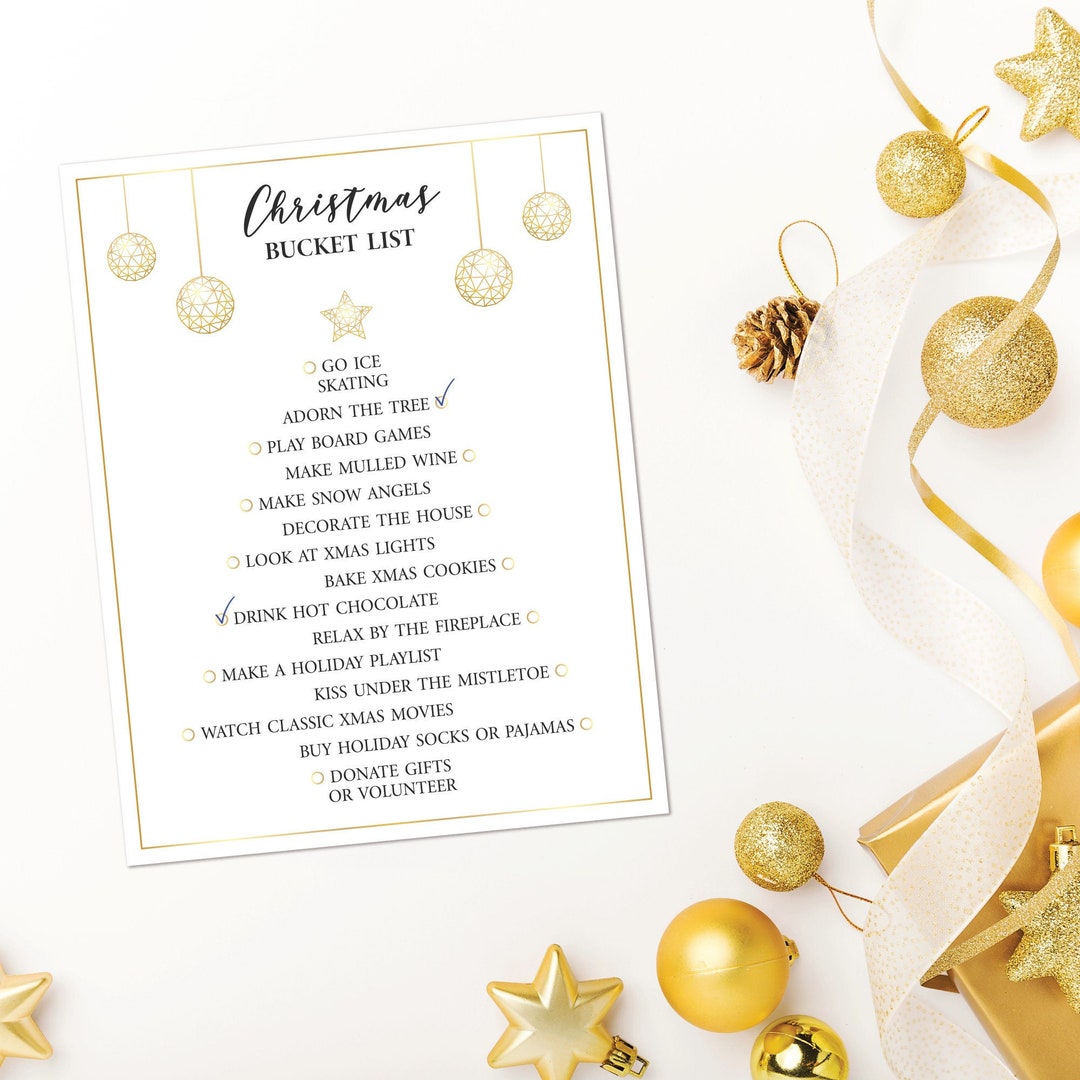 Christmas
BUCKET LIST
GO ICE
SKATING
ADORN THE TREE
PLAY BOARD GAMES
MAKE MULLED WINE
MAKE SNOW ANGELS
DECORATE THE HOUSE
LOOK AT XMAS LIGHTS
BAKE XMAS COOKIES
DRINK HOT CHOCOLATE
RELAX BY THE FIREPLACE
MAKE A HOLIDAY PLAYLIST
KISS UNDER THE MISTLETOE
WATCH CLASSIC XMAS MOVIES
BUY HOLIDAY SOCKS OR PAJAMAS
DONATE GIFTS
OR VOLUNTEER